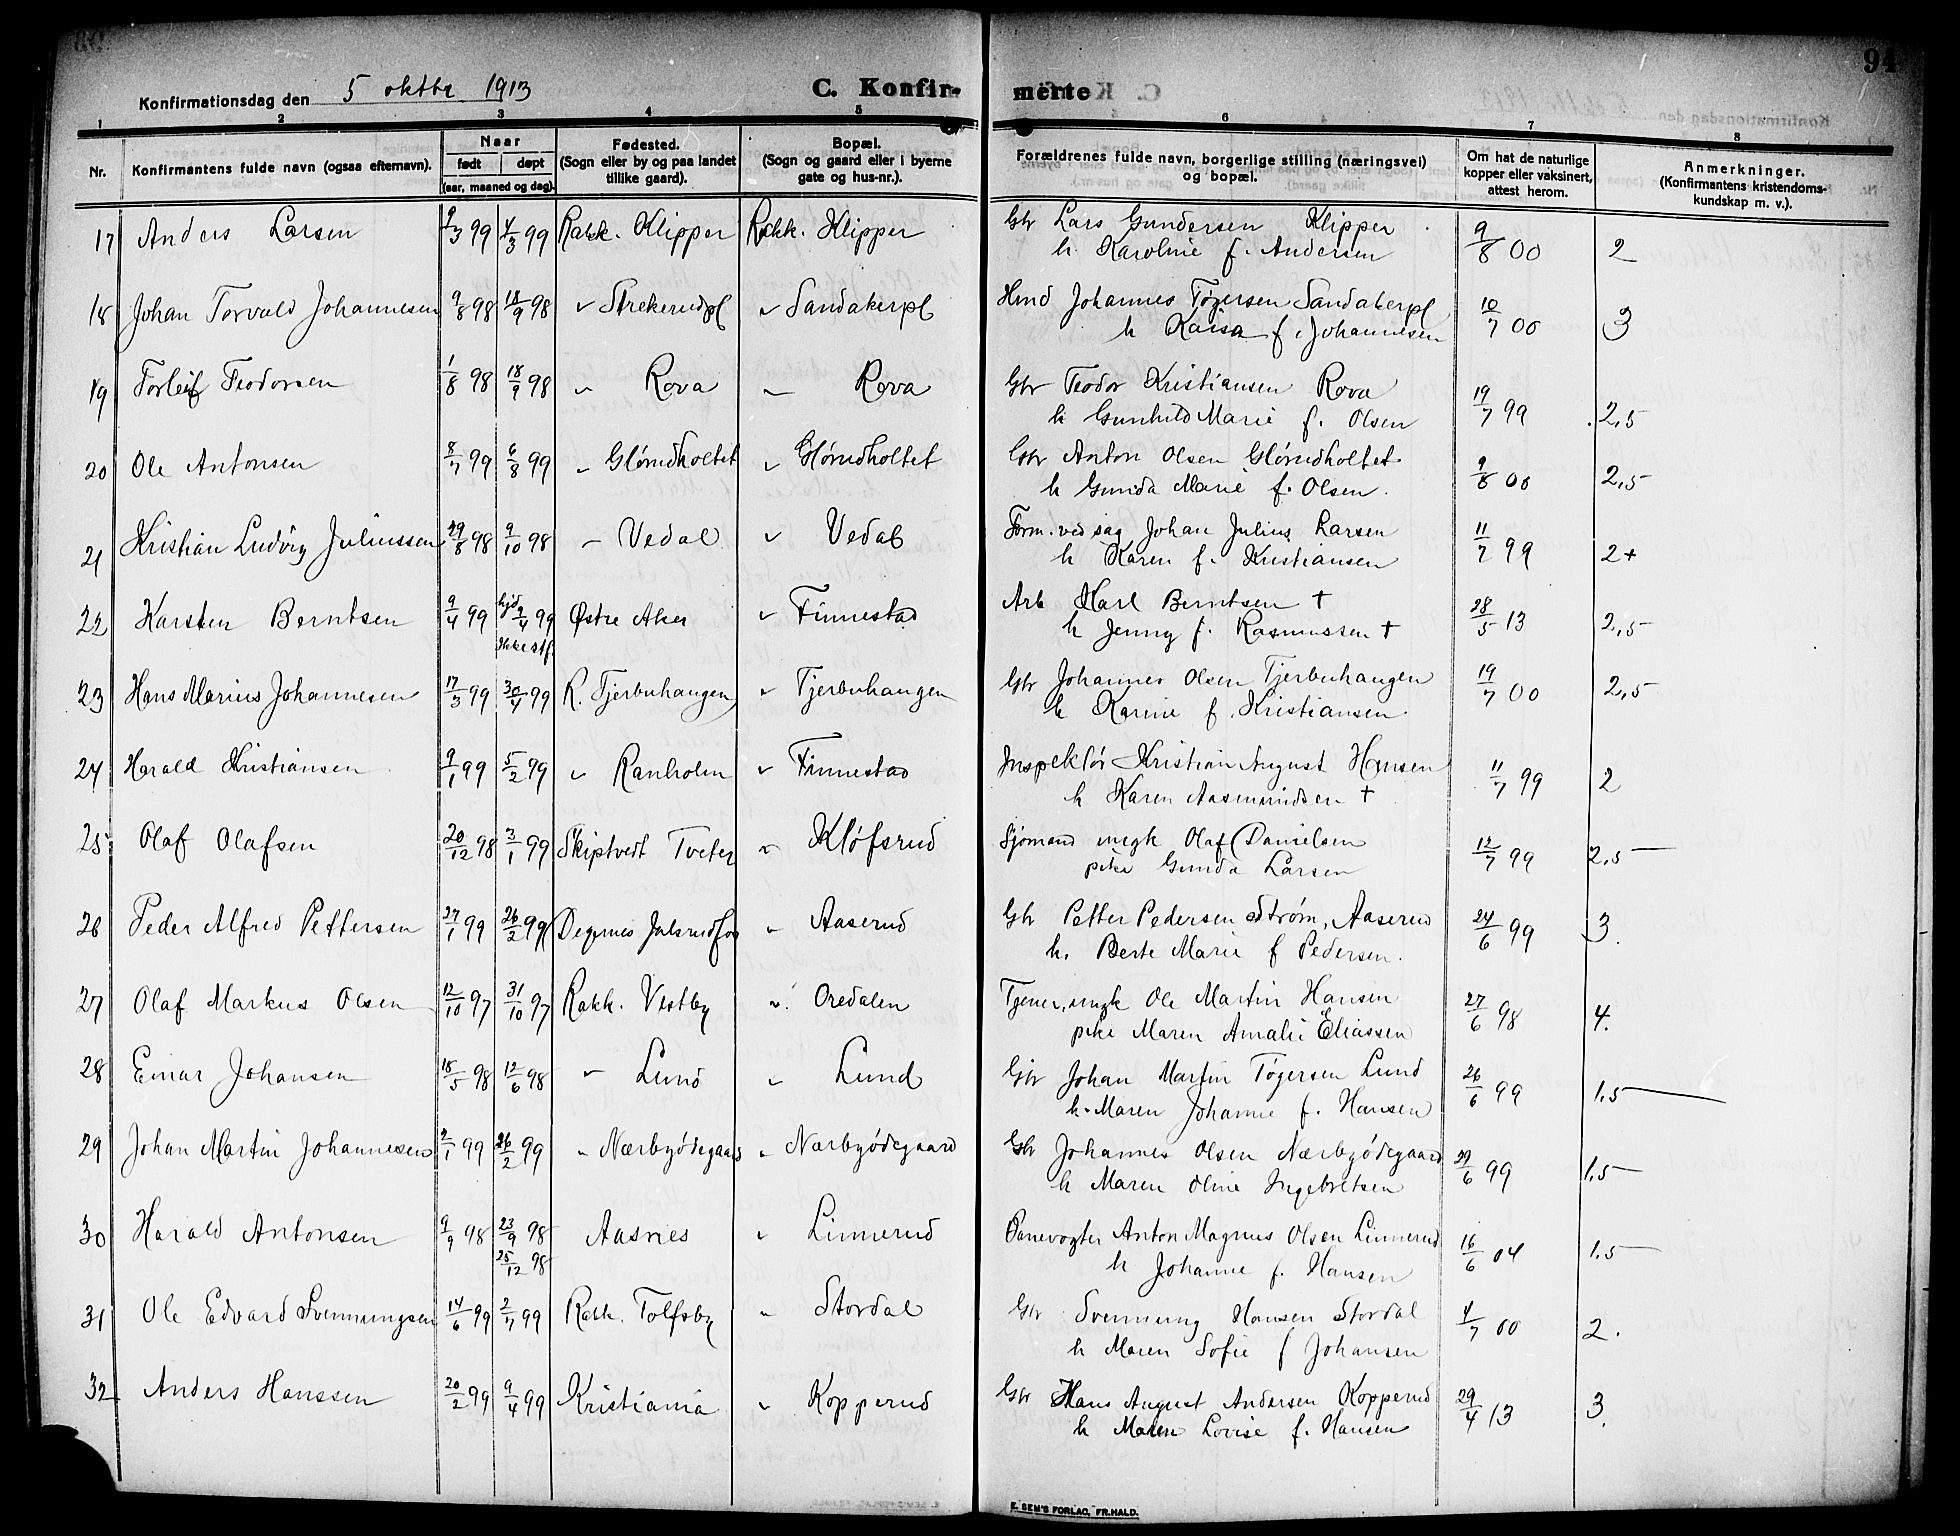 94
Konfirmationsdag den 5 oktbr 1913
C. Konfir- merte
1 2 3 4 5 6 7 8
Nr. Konfirmantens fulde navn (ogsaa efternavn). Naar født døpt (aar, maaned og dag). Fødested. (Sogn eller by og paa landet tillike gaard). Bopæl. (Sogn og gaard eller i byerne gate og hus-nr.). Forældrenes fulde navn, borgerlige stilling (næringsvei) og bopæl. Om hat de naturlige kopper eller vaksinert, attest herom. Anmerkninger. (Konfirmantens kristendoms-kundskap m. v.).
17 Anders Larsen 9/3 99 4/3 99 Rakk. Klipper Rakk. Klipper Gbr Lars Gundersen Klipper 9/8 00 2
h. Karoline f. Andersen
18 Johan Torvald Johannesen 9/8 98 18/9 98 " Strekerudpl " Sandakerpl Hmd Johannes Tøgersen Sandakerpl 10/7 00 3
h Kaisa f. Johannesen
19 Torleif Teodorsen 1/8 98 18/9 98 " Rova " Rova Gbr Teodor Kristiansen Rova 19/7 99 2,5
h Gunhild Marie f. Olsen
20 Ole Antonsen 8/7 99 6/8 99 " Glørudholtet " Glørudholtet Gbr Anton Olsen Glørudholtet 9/8 00 2,5
h Gunda Marie f. Olsen.
21 Kristian Ludvig Juliussen 29/8 98 9/10 98 " Vedal " Vedal Form. ved sag Johan Julius Larsen 11/7 99 2+
h Karen f. Kristiansen
22 Karsten Berntsen 9/4 99 hjd 9/4 99 Østre Aker " Finnestad Arb Karl Berntsen † 28/5 13 2,5
Ikke stf. h Jenny f. Rasmussen †
23 Hans Marius Johannesen 17/3 99 30/4 99 R. Tjerbuhaugen " Tjerbuhaugen Gbr Johannes Olsen Tjerbuhaugen 19/7 00 2,5
h Karine f. Kristiansen
24 Harald Kristiansen 9/1 99 5/2 99 " Ranholm " Finnestad Inspektør Kristian August Hansen 11/7 99 2
h Karen Aasmundsen †
25 Olaf Olafsen 20/12 98 3/1 99 Skiptvedt Tveter " Kløfsrud Sjømand ungk Olaf Danielsen 12/7 99 2,5
pike Gunda Larsen
26 Peder Alfred Pettersen 27/1 99 26/2 99 Degernes Julsrudfos " Aaserud Gbr Petter Pedersen Strøm, Aaserud 24/6 99 3.
h. Berte Marie f Pedersen.
27 Olaf Markus Olsen 12/10 97 31/10 97 Rakk. Vestby " Oredalen Tjener, ungk Ole Martin Hansen 27/6 98 4.
pike Maren Amalie Eliassen
28 Einar Johansen 18/5 98 12/6 98 " Lund " Lund Gbr Johan Martin Tøgersen Lund 26/6 99 1,5
h. Maren Johanne f. Hansen
29 Johan Martin Johannesen 2/1 99 26/2 99 " Nærbyødegaard " Nærbyødegaard Gbr Johannes Olsen Nærbyødegaard 29/6 99 1,5
h Maren Oline Ingebretsen
30 Harald Antonsen 9/9 98 23/9 98 Aasnes " Linnerud Banevogter Anton Magnus Olsen Linnerud 16/6 04 1,5
25/12 98 h Johanne f. Hansen
31 Ole Edvard Svenningsen 14/6 99 2/7 99 Rakk. Tolfsby " Stordal Gbr Svenning Hansen Stordal 4/7 00 2.
h Maren Sofie f Johansen
32 Anders Hanssen 20/2 99 9/4 99 Kristiania " Kopperud Gbr Hans August Andersen Kopperud 29/4 13 3.
h Maren Lovise f. Hansen
E. SEM'S FORLAG, FR.HALD.